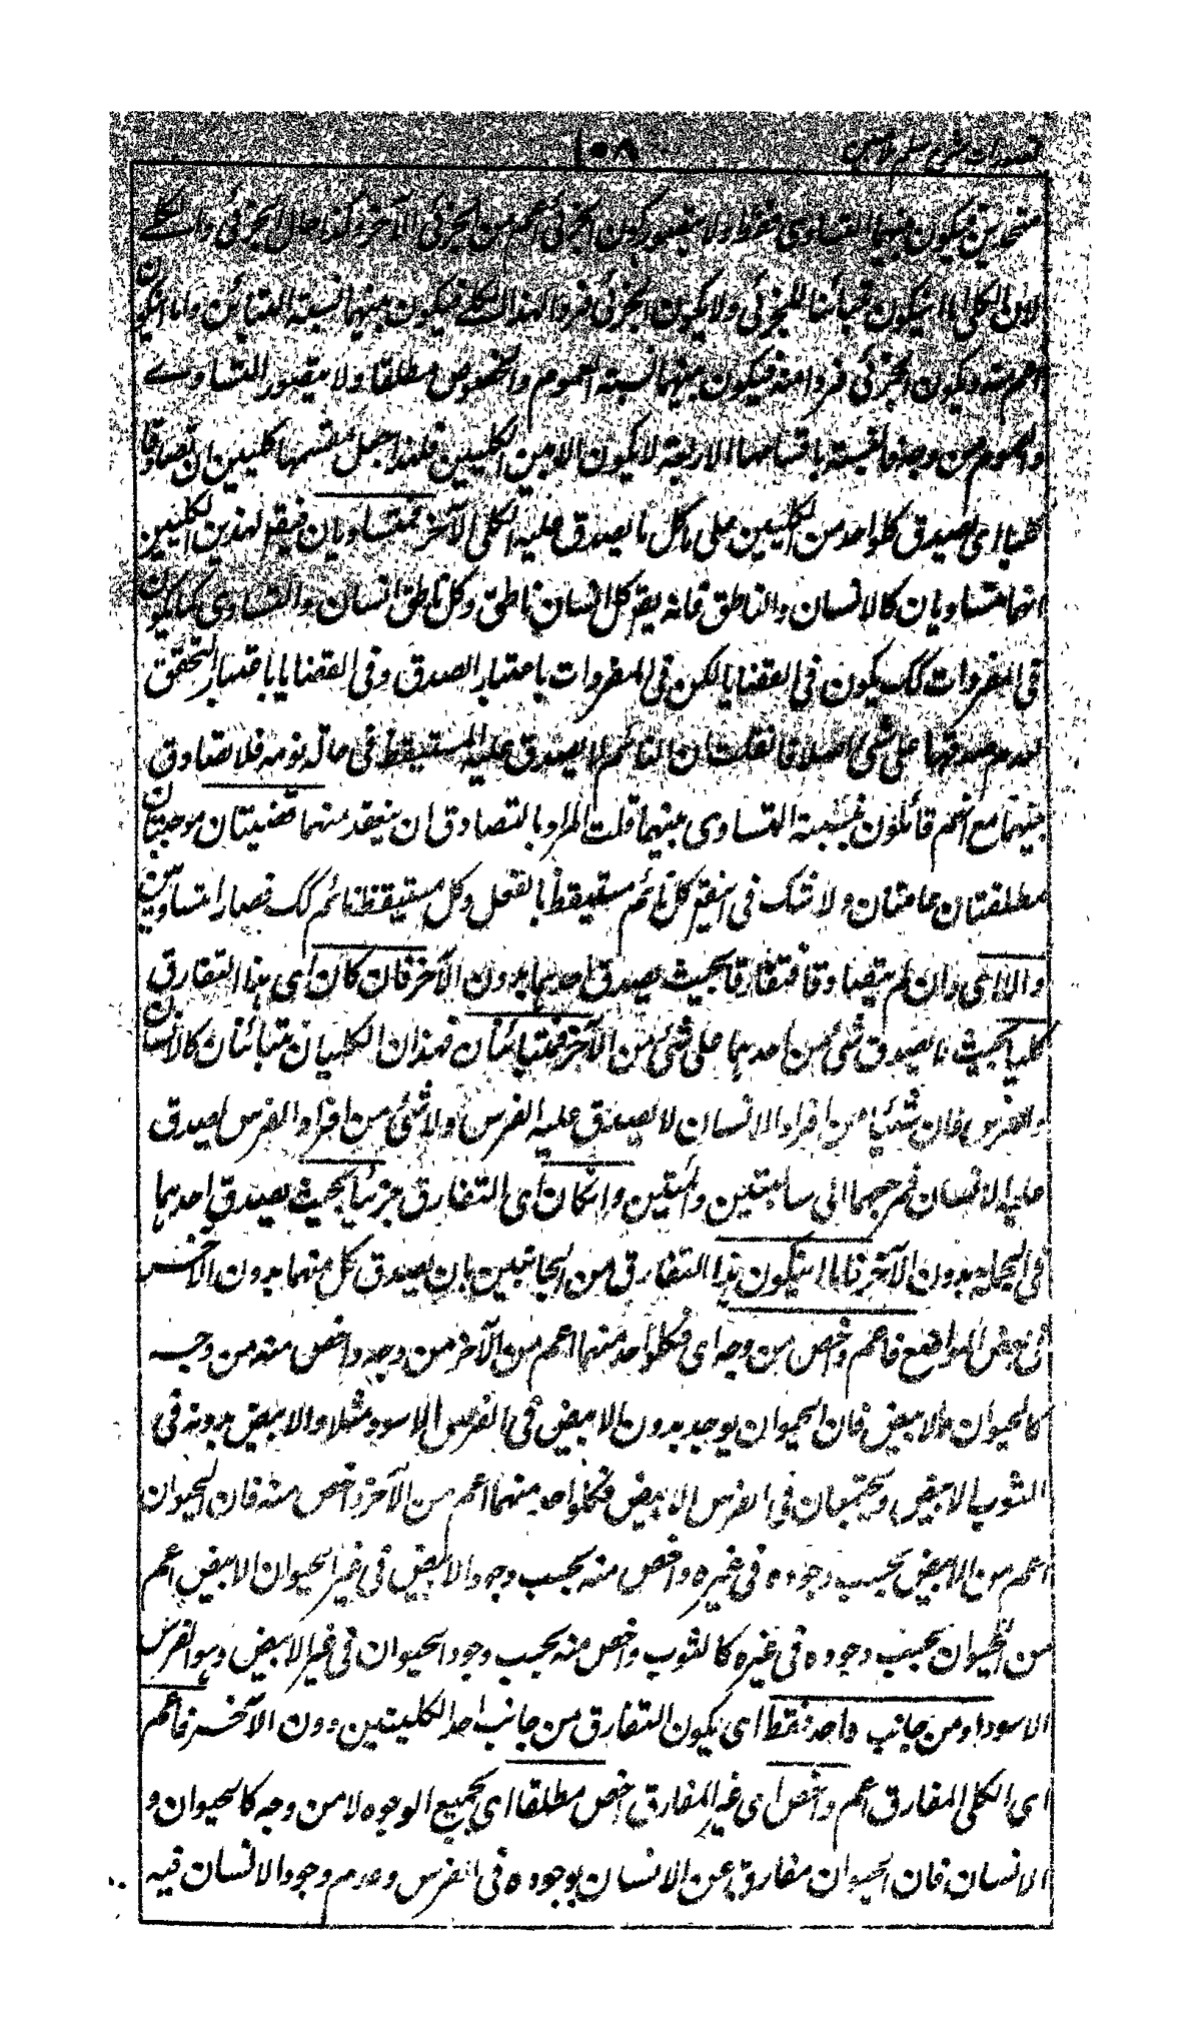 ١٠٨
متحدين فيكون بينهما التساوى فقط ولا يتصور كون الجزئى اعم من الجزئى الآخر وكذا حال الجزئى والكلے
لان الكلى اما ان يكون مبائنا للجزئى ولا يكون الجزئى فردا لهذا الكلے فيكون بينهما نسبة التبائن واما ان يكون
اعم منه ويكون الجزئى فردا منه فيكون بينهما نسبة العموم والخصوص مطلقا ولا يتصور التساوے
والعموم من وجه فالنسبة باقسامها الاربعة لا يكون الا بين الكليين فلذا جعل مقسمها كليين ان تصادقا
كليا اى يصدق كلواحد من الكليين على كل ما يصدق عليه الكلى الآخر فمتساويان فيقم لهذين الكليين
انهما متساويان كالانسان والناطق فانه يقم كل انسان ناطق وكل ناطق انسان والتساوى كما يكون
فى المفردات كك يكون فى القضايا لكن فى المفردات باعتبار الصدق وفى القضايا باعتبار التحقق
لعدم صدقها على شئ اصلا فان قلت ان النائم لا يصدق عليه المستيقظ فى حالة نومه فلا تصادق
بينهما مع انهم قائلون بنسبة التساوى بينهما قلت المراد بالتصادق ان ينعقد منهما قضيتان موجبتان
مطلقتان عامتان ولا شك فى انه يقم كل نائم مستيقظ بالفعل وكل مستيقظ نائم كك فصارا متساويين
والا اى وان لم يتصادقا فتفارقا بحيث يصدق احدهما بدون الآخر فان كان اى هذا التفارق
كليا بحيث لا يصدق شئ من احدهما على شئ من الآخر فمتبائنان فهذان الكليان متبائنان كالانسان
والفرس فان شيئا من افراد الانسان لا يصدق عليه الفرس ولا شئ من افراد الفرس يصدق
عليه الانسان فمرجعهما الى سالبتين دائمتين وان كان اى التفارق جزئيا بحيث يصدق احدهما
فى الجملة بدون الآخر فاما ان يكون هذا التفارق من الجانبين بان يصدق كل منهما بدون الآخر
فى بعض المواضع فاعم واخص من وجه اى فكلواحد منهما اعم من الآخر من وجه واخص منه من وجه
كالحيوان والابيض فان الحيوان يوجد بدون الابيض فى الفرس الاسود مثلا والابيض بدونه فى
الثوب الابيض ويجتمعان فى الفرس الابيض فكلواحد منهما اعم من الآخر واخص منه فان الحيوان
اعم من الابيض بحسب وجوده فى غيره واخص منه بحسب وجود الابيض فى غير الحيوان الابيض اعم
من الحيوان بحسب وجوده فى غيره كالثوب واخص منه بحسب وجود الحيوان فى غير الابيض وهو الفرس
الاسود او من جانب واحد فقط اى يكون التفارق من جانب احد الكليتين دون الآخر فاعم
اى الكلى المفارق اعم واخص اى غير المفارق اخص مطلقا اى بجميع الوجوه لا من وجه كالحيوان و
الانسان فان الحيوان مفارق عن الانسان بوجوده فى الفرس وعدم وجود الانسان فيه